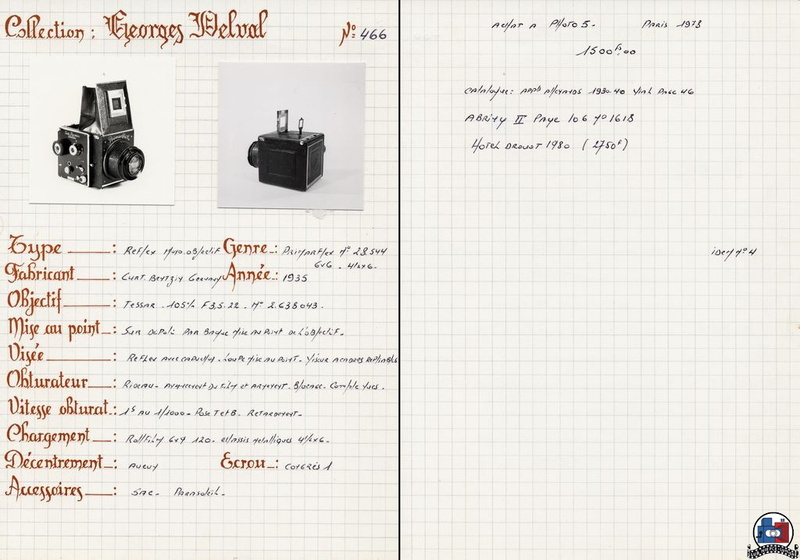 Collection : Georges Delval
N° 466
Type : Reflex mono.objectif Genre : Primarflex N° 28.544
6x6 - 4½x6-
Fabricant : Curt. Bentzin Année : 1935
Objectif : Tessar - 105% F3.5.22 - N° 2.638043.
Mise au point : Sur Depoli Par Bague Mise au Point de l'objectif.
Visée : Reflex avec capuchon - Loupe mise au Point - Viseur
Obturateur : Rideau - du film et armement. Blocage. Compte vues.
Vitesse obturat. : 1s au 1/1000 - Pose T et B. Retardement.
Chargement : Rollfilm 6x9 120 - chassis metalliques 4½x6-
Décentrement : Aucun Ecrou : Congrès 1
Accessoires : Sac - Parasoleil.
Achat A Photo 5 - Paris 1973
1500 Fs.00
Catalogue : 1930.40 Page 46
Abring II Page 106 N° 1618
Hotel Drouot 1980 (2750F)
idem N° 4